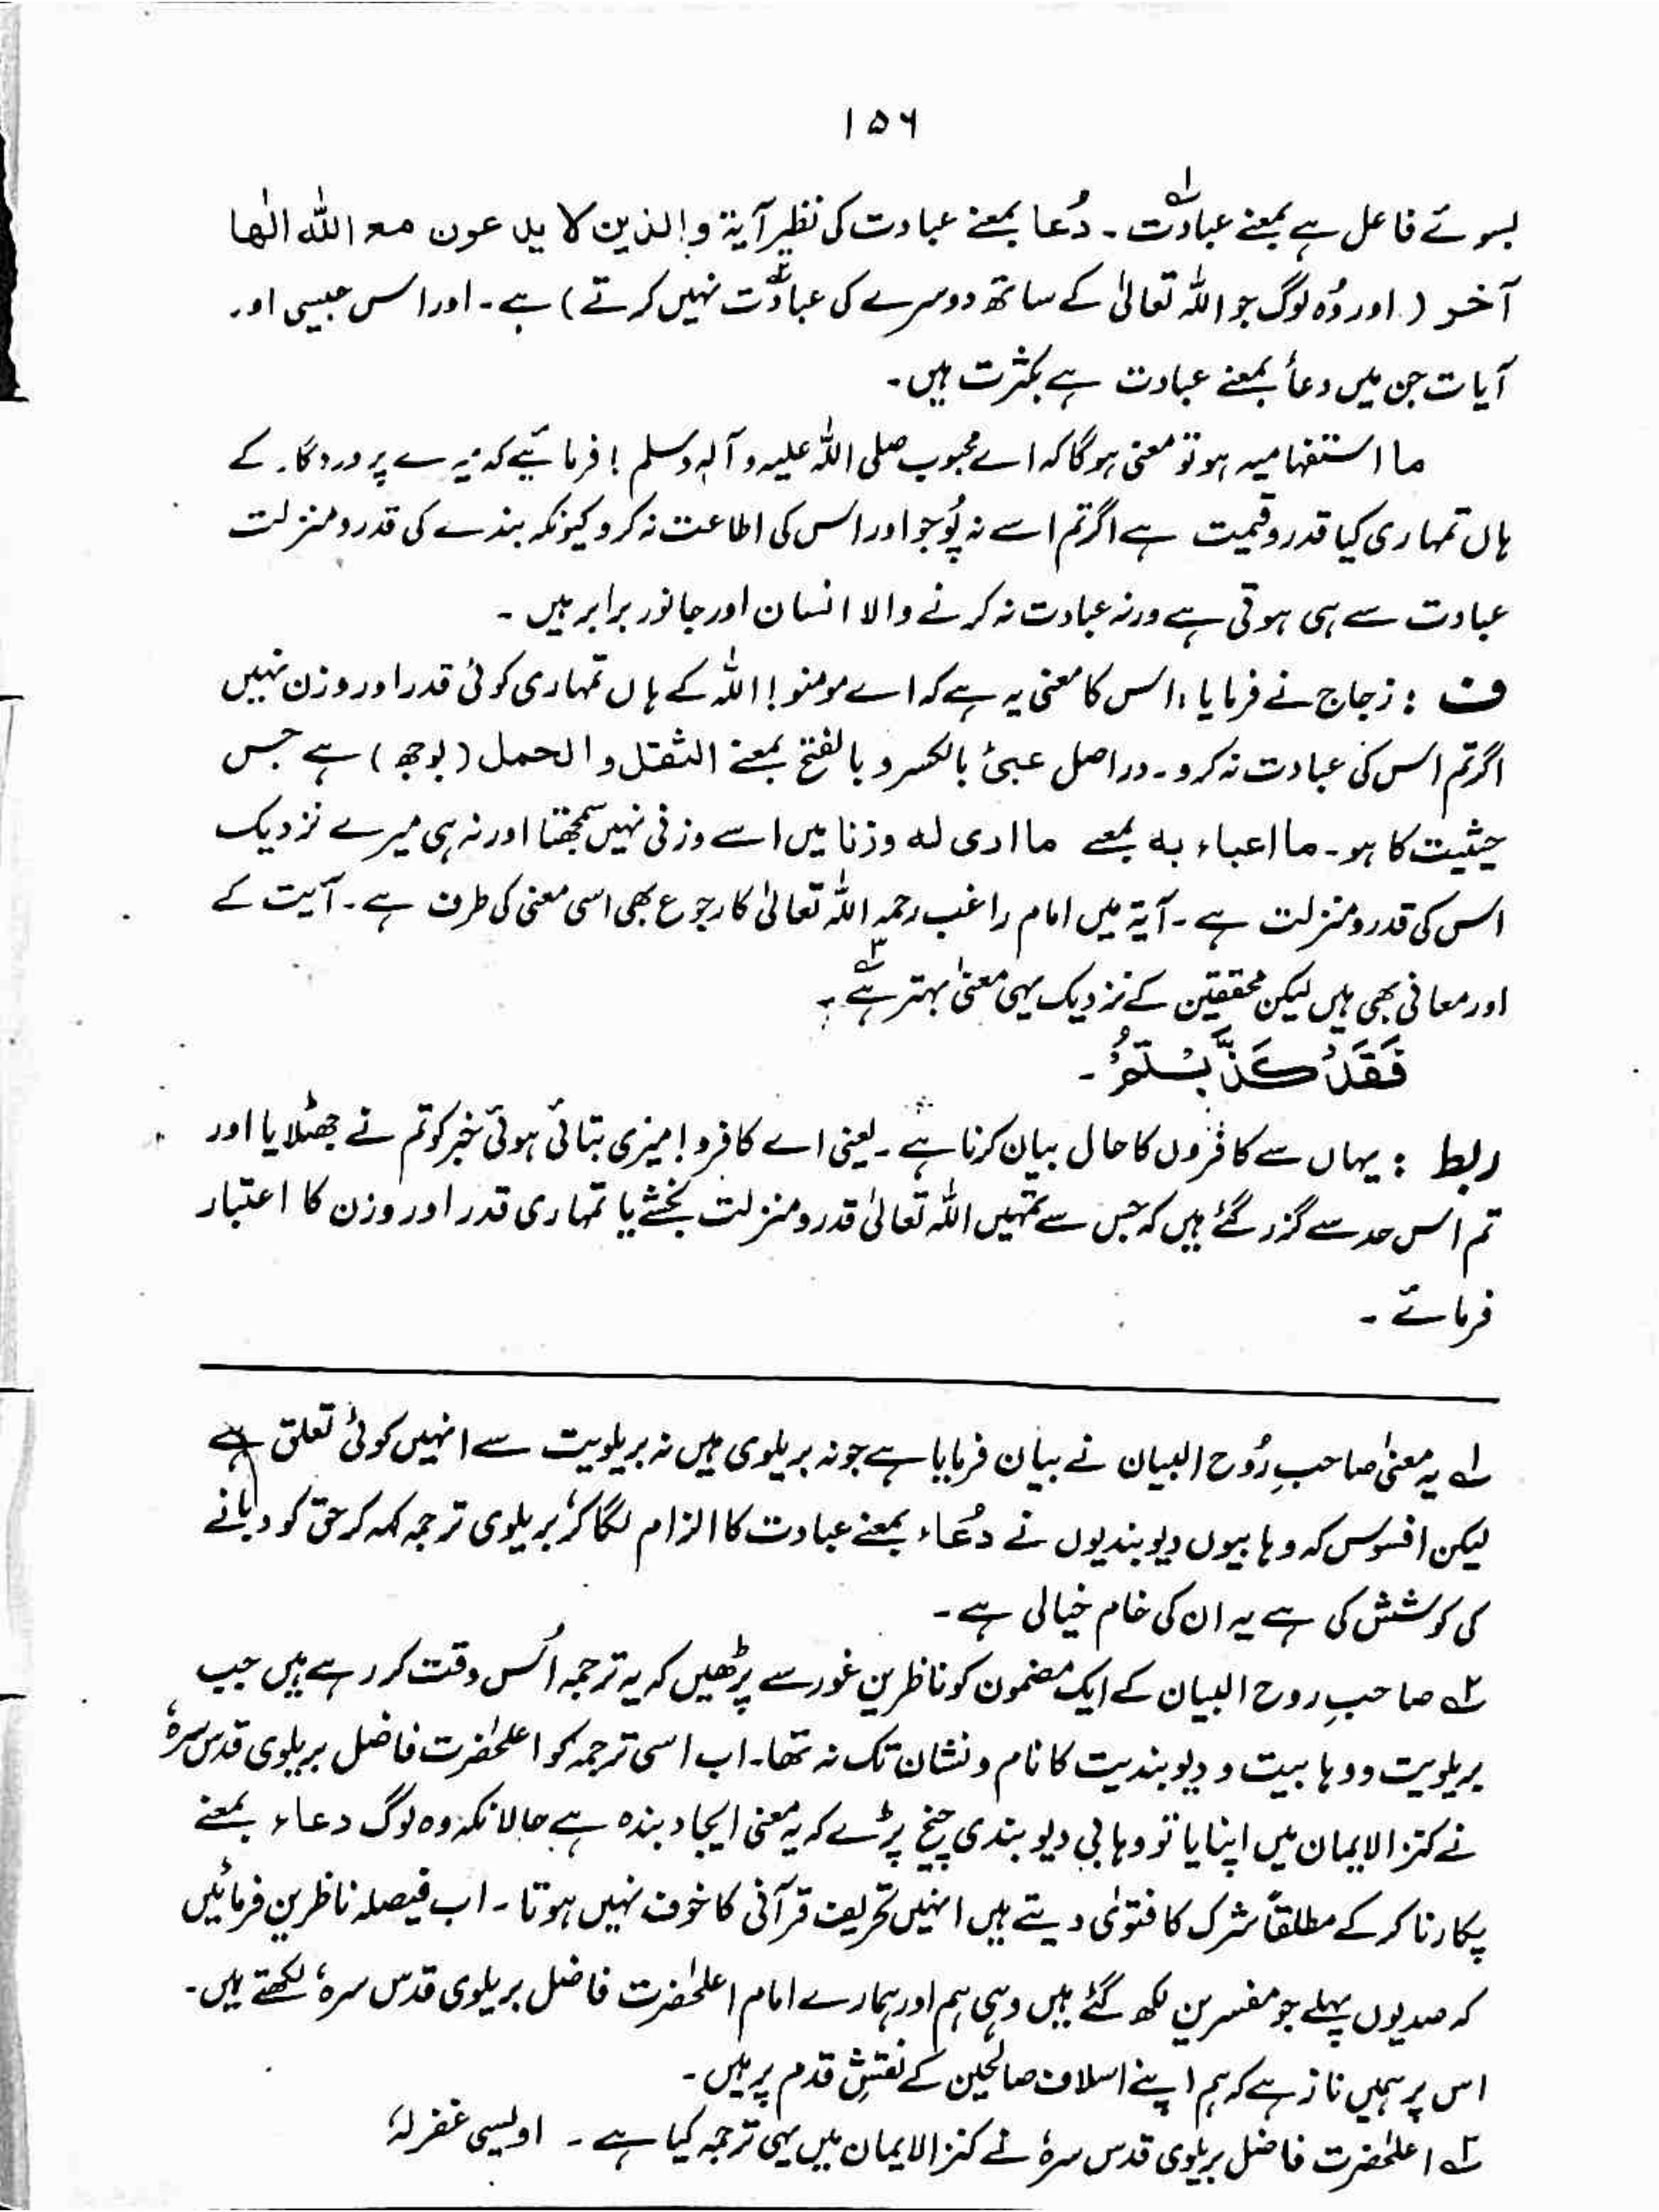 ۱۵۶
بسوئے فاعل ہے بمعنے عبادت۱؎۔ دُعا بمعنے عبادت کی نظیر آیۃ والذین لا یدعون مع اللہ الٰھا
آخر (اور وُہ لوگ جو اللہ تعالیٰ کے ساتھ دوسرے کی عبادت۲؎ نہیں کرتے) ہے۔ اور اس جیسی اور
آیات جن میں دعأ بمعنے عبادت ہے بکثرت ہیں۔
ما استفہامیہ ہو تو معنی ہو گا کہ اے محبوب صلی اللہ علیہ وآلہ وسلم ! فرمائیے کہ میرے پروردگار کے
ہاں تمہاری کیا قدر وقیمت ہے اگر تم اسے نہ پُوجو اور اس کی اطاعت نہ کرو کیونکہ بندے کی قدر و منزلت
عبادت سے ہی ہوتی ہے ورنہ عبادت نہ کرنے والا انسان اور جانور برابر ہیں ۔
ف : زجاج نے فرمایا ، اس کا معنی یہ ہے کہ اے مومنو ! اللہ کے ہاں تمہاری کوئی قدر اور وزن نہیں
اگر تم اس کی عبادت نہ کرو۔ دراصل عبیٔ بالکسر و بالفتح بمعنے الثقل والحمل (بوجھ) ہے جس
حیثیت کا ہو۔ ما اعباء بہ بمعے ما اری لہ وزنا میں اسے وزنی نہیں سمجھتا اور نہ ہی میرے نزدیک
اس کی قدر و منزلت ہے ۔ آیۃ میں امام راغب رحمہ اللہ تعالیٰ کا رجوع بھی اسی معنی کی طرف ہے ۔ آیت کے
اور معانی بھی ہیں لیکن محققین کے نزدیک یہی معنیٰ بہتر ہے۳؎ ۔
فَقَدْ كَذَّبْتُمْ ۔
ربط : یہاں سے کافروں کا حال بیان کرنا ہے ۔ یعنی اے کافرو ! میری بتائی ہوئی خبر کو تم نے جھٹلایا اور
تم اس حد سے گزر گئے ہیں کہ جس سے تمہیں اللہ تعالیٰ قدر و منزلت بخشے یا تمہاری قدر اور وزن کا اعتبار
فرمائے ۔
۱؎ یہ معنیٰ صاحبِ رُوح البیان نے بیان فرمایا ہے جو نہ بریلوی ہیں نہ بریلویت سے انہیں کوئی تعلق ہے
لیکن افسوس کہ وہابیوں دیوبندیوں نے دُعاء بمعنے عبادت کا الزام لگا کر بریلوی ترجمہ کہہ کر حق کو دبانے
کی کوشش کی ہے یہ ان کی خام خیالی ہے ۔
۲؎ صاحبِ روح البیان کے ایک مضمون کو ناظرین غور سے پڑھیں کہ یہ ترجمہ اُس وقت کر رہے ہیں جب
بریلویت و وہابیت و دیوبندیت کا نام و نشان تک نہ تھا۔ اب اسی ترجمہ کو اعلیٰحضرت فاضل بریلوی قدس سرہٗ
نے کنز الایمان میں اپنایا تو وہابی دیوبندی چیخ پڑے کہ یہ معنی ایجاد بندہ ہے حالانکہ وہ لوگ دعاء بمعنے
پکارنا کر کے مطلقاً شرک کا فتویٰ دیتے ہیں انہیں تحریف قرآنی کا خوف نہیں ہوتا ۔ اب فیصلہ ناظرین فرمائیں
کہ صدیوں پہلے جو مفسرین لکھ گئے ہیں وہی ہم اور ہمارے امام اعلیٰحضرت فاضل بریلوی قدس سرہٗ لکھتے ہیں۔
اس پر ہمیں ناز ہے کہ ہم اپنے اسلاف صالحین کے نقشِ قدم پر ہیں ۔
۳؎ اعلیٰحضرت فاضل بریلوی قدس سرہٗ نے کنز الایمان میں یہی ترجمہ کیا ہے ۔ اویسی غفرلہٗ